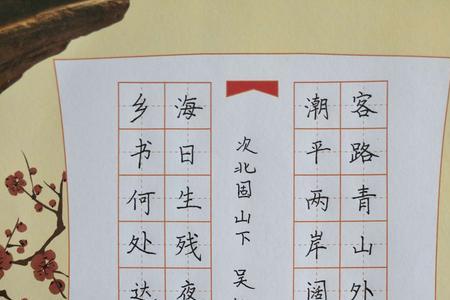 客路青山外
潮平两岸阔
次北固山下 吴
海日生残夜
乡书何处达